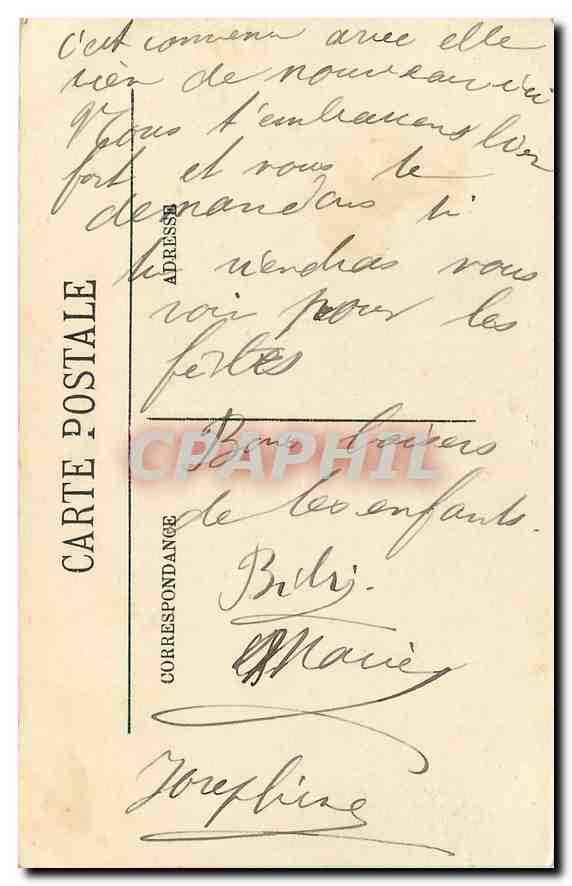 c'est convenu avec elle
rien de nouveau ici
Nous t'embrassons bien
fort et vous te
demandons si
tu viendras vous
voir pour les
fêtes
Bons baisers
de tes enfants.
Marie
Josephine
CARTE POSTALE
ADRESSE
CORRESPONDANCE
CPAPHIL